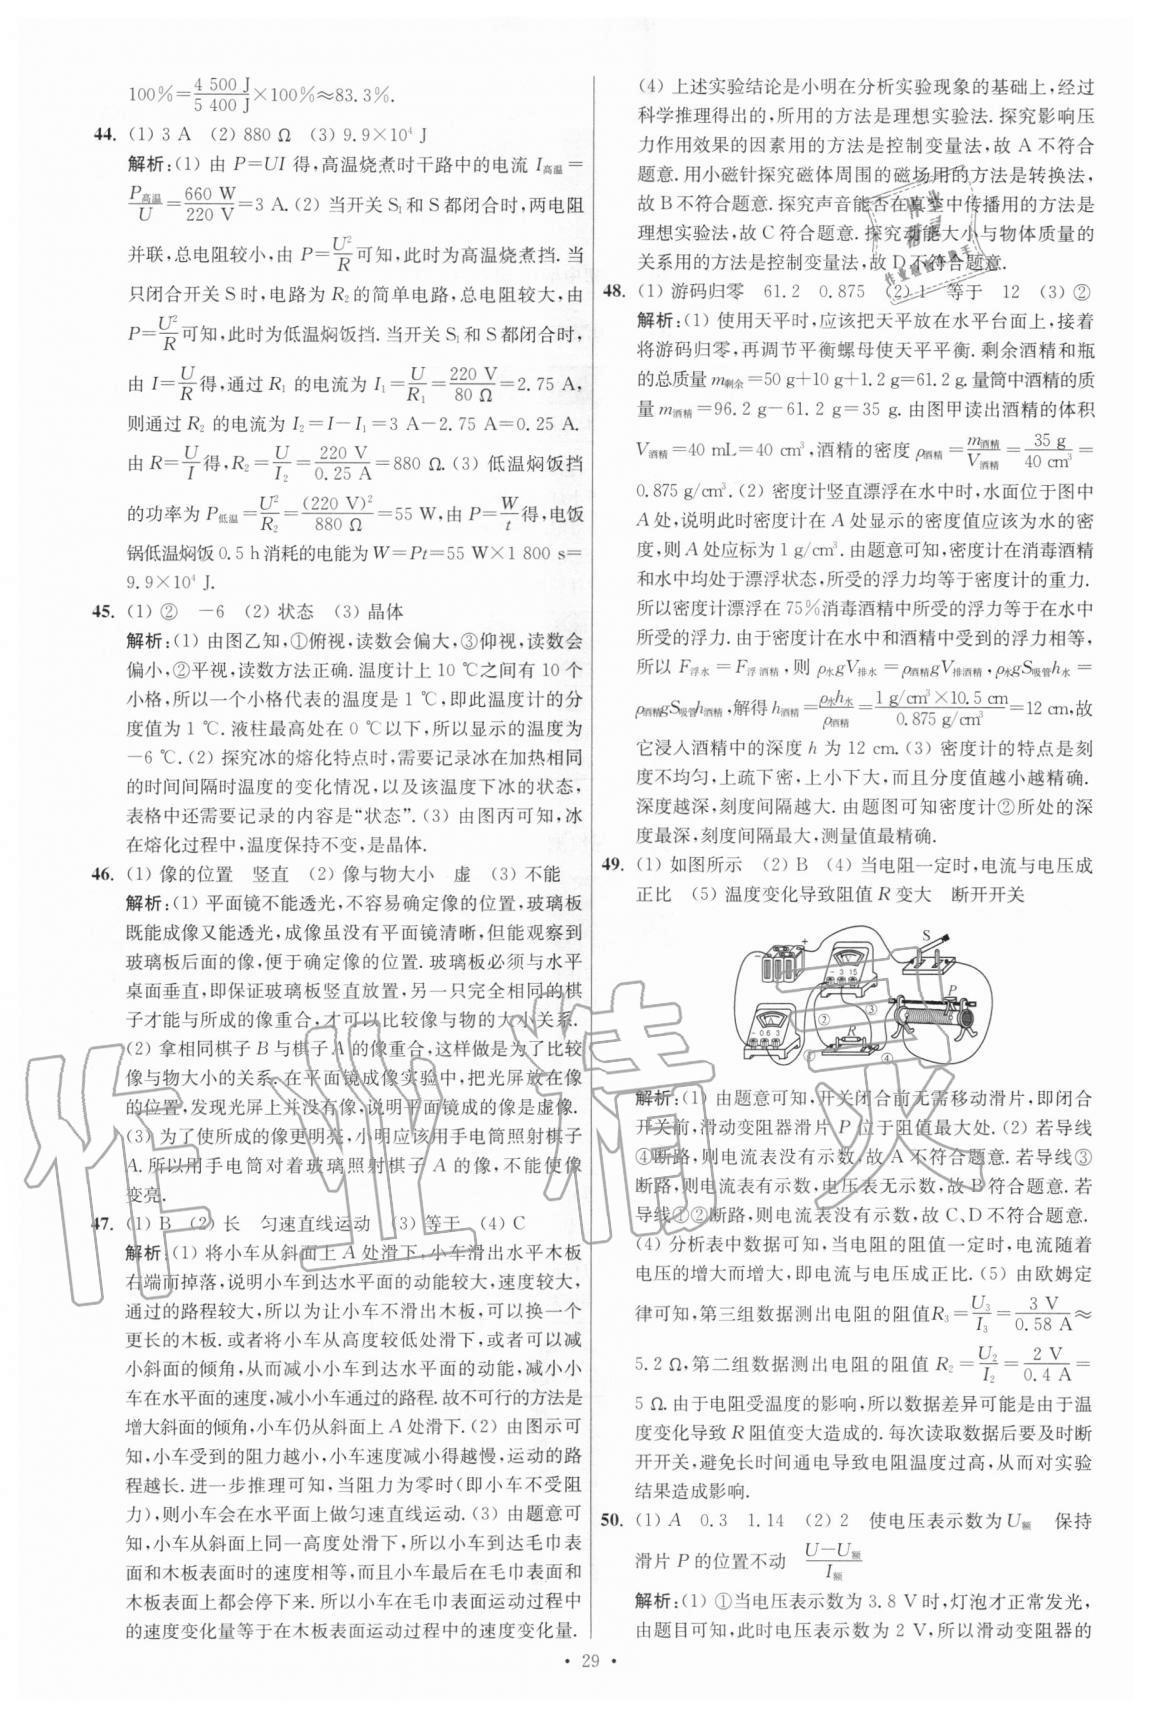 100%=4 500 J/5 400 J×100%≈83.3%.
44. (1) 3 A (2) 880 Ω (3) 9.9×10⁴ J
解析:(1) 由 P=UI 得,高温烧煮时干路中的电流 I高温=
P高温/U=660 W/220 V=3 A.(2) 当开关 S₁和 S 都闭合时,两电阻
并联,总电阻较小,由 P=U²/R可知,此时为高温烧煮挡. 当
只闭合开关 S 时,电路为 R₂的简单电路,总电阻较大,由
P=U²/R可知,此时为低温焖饭挡. 当开关 S₁和 S 都闭合时,
由 I=U/R得,通过 R₁ 的电流为 I₁=U/R₁=220 V/80 Ω=2.75 A,
则通过 R₂ 的电流为 I₂=I-I₁=3 A-2.75 A=0.25 A.
由 R=U/I得,R₂=U/I₂=220 V/0.25 A=880 Ω.(3) 低温焖饭挡
的功率为 P低温=U²/R₂=(220 V)²/880 Ω=55 W,由 P=W/t得,电饭
锅低温焖饭 0.5 h 消耗的电能为 W=Pt=55 W×1 800 s=
9.9×10⁴ J.
45. (1) ② -6 (2) 状态 (3) 晶体
解析:(1) 由图乙知,①俯视,读数会偏大,③仰视,读数会
偏小,②平视,读数方法正确. 温度计上 10 ℃之间有 10 个
小格,所以一个小格代表的温度是 1 ℃,即此温度计的分
度值为 1 ℃. 液柱最高处在 0 ℃以下,所以显示的温度为
-6 ℃.(2) 探究冰的熔化特点时,需要记录冰在加热相同
的时间间隔时温度的变化情况,以及该温度下冰的状态,
表格中还需要记录的内容是“状态”.(3) 由图丙可知,冰
在熔化过程中,温度保持不变,是晶体.
46. (1) 像的位置 竖直 (2) 像与物大小 虚 (3) 不能
解析:(1) 平面镜不能透光,不容易确定像的位置,玻璃板
既能成像又能透光,成像虽没有平面镜清晰,但能观察到
玻璃板后面的像,便于确定像的位置. 玻璃板必须与水平
桌面垂直,即保证玻璃板竖直放置,另一只完全相同的棋
子才能与所成的像重合,才可以比较像与物的大小关系.
(2) 拿相同棋子 B 与棋子 A 的像重合,这样做是为了比较
像与物大小的关系. 在平面镜成像实验中,把光屏放在像
的位置,发现光屏上并没有像,说明平面镜成的像是虚像.
(3) 为了使所成的像更明亮,小明应该用手电筒照射棋子
A. 所以用手电筒对着玻璃照射棋子 A 的像,不能使像
变亮.
47. (1) B (2) 长 匀速直线运动 (3) 等于 (4) C
解析:(1) 将小车从斜面上 A 处滑下,小车滑出水平木板
右端而掉落,说明小车到达水平面的动能较大,速度较大,
通过的路程较大,所以为让小车不滑出木板,可以换一个
更长的木板. 或者将小车从高度较低处滑下,或者可以减
小斜面的倾角,从而减小小车到达水平面的动能,减小小
车在水平面的速度,减小小车通过的路程. 故不可行的方法是
增大斜面的倾角,小车仍从斜面上 A 处滑下.(2) 由图示可
知,小车受到的阻力越小,小车速度减小得越慢,运动的路
程越长. 进一步推理可知,当阻力为零时(即小车不受阻
力),则小车会在水平面上做匀速直线运动.(3) 由题意可
知,小车从斜面上同一高度处滑下,所以到达毛巾表面表
面和木板表面时的速度相等,而且最后在毛巾表面和
木板表面上都会停下来. 所以小车在毛巾表面运动过程中
的速度变化量等于在木板表面运动过程中的速度变化量.
(4) 上述实验结论是小明在分析实验现象的基础上,经过
科学推理得出的,所用的方法是理想实验法. 探究影响压
力作用效果的因素用的方法是控制变量法,故 A 不符合
题意. 用小磁针探究磁体周围的磁场用的方法是转换法,
故 B 不符合题意. 探究声音能否在真空中传播用的方法是
理想实验法,故 C 符合题意. 探究动能大小与物体质量的
关系用的方法是控制变量法,故 D 不符合题意.
48. (1) 游码归零 61.2 0.875 (2) 1 等于 12 (3) ②
解析:(1) 使用天平时,应该把天平放在水平台面上,接着
将游码归零,再调节平衡螺母使天平平衡. 剩余酒精和瓶
的总质量 m剩余=50 g+10 g+1.2 g=61.2 g. 量筒中酒精的质
量 m酒精=96.2 g-61.2 g=35 g. 由图甲读出酒精的体积
V酒精=40 mL=40 cm³,酒精的密度 ρ酒精=m酒精/V酒精=35 g/40 cm³=
0.875 g/cm³.(2) 密度计竖直漂浮在水中时,水面位于图中
A 处,说明此时密度计在 A 处显示的密度值应该为水的密
度,则 A 处应标为 1 g/cm³. 由题意可知,密度计在消毒酒精
和水中均处于漂浮状态,所受的浮力均等于密度计的重力.
所以密度计漂浮在 75%消毒酒精中所受的浮力等于在水中
所受的浮力. 由于密度计在水中和酒精中受到的浮力相等,
所以 F浮水=F浮酒精,则 ρ水gV排水=ρ酒精gV排酒精,ρ水gS吸管h水=
ρ酒精gS吸管h酒精,解得 h酒精=ρ水h水/ρ酒精=1 g/cm³×10.5 cm/0.875 g/cm³=12 cm,故
它浸入酒精中的深度 h 为 12 cm.(3) 密度计的特点是刻
度不均匀,上疏下密,上小下大,而且分度值越小越精确.
深度越深,刻度间隔越大. 由题图可知密度计②所处的深
度最深,刻度间隔最大,测量值最精确.
49. (1) 如图所示 (2) B (4) 当电阻一定时,电流与电压成
正比 (5) 温度变化导致阻值 R 变大 断开开关
S
P
- 3 15
- 0.6 3
R
② ③ ④
解析:(1) 由题意可知,开关闭合前无需移动滑片,即闭合
开关前,滑动变阻器滑片 P 位于阻值最大处.(2) 若导线
④断路,则电流表没有示数,故 A 不符合题意. 若导线③
断路,则电流表有示数,电压表无示数,故 B 符合题意. 若
导线①②断路,则电流表没有示数,故 C、D 不符合题意.
(4) 分析表中数据可知,当电阻的阻值一定时,电流随着
电压的增大而增大,即电流与电压成正比.(5) 由欧姆定
律可知,第三组数据测出电阻的阻值R₃=U₃/I₃=3 V/0.58 A≈
5.2 Ω,第二组数据测出电阻的阻值 R₂=U₂/I₂=2 V/0.4 A=
5 Ω. 由于电阻受温度的影响,所以数据差异可能是由于温
度变化导致 R 阻值变大造成的. 每次读取数据后要及时断
开开关,避免长时间通电导致电阻温度过高,从而对实验
结果造成影响.
50. (1) A 0.3 1.14 (2) 2 使电压表示数为 U额 保持
滑片 P 的位置不动 U-U额/I额
解析:(1) ①当电压表示数为 3.8 V 时,灯泡才正常发光,
由题目可知,此时电压表示数为 2 V,所以滑动变阻器的
• 29 •
作业精灵